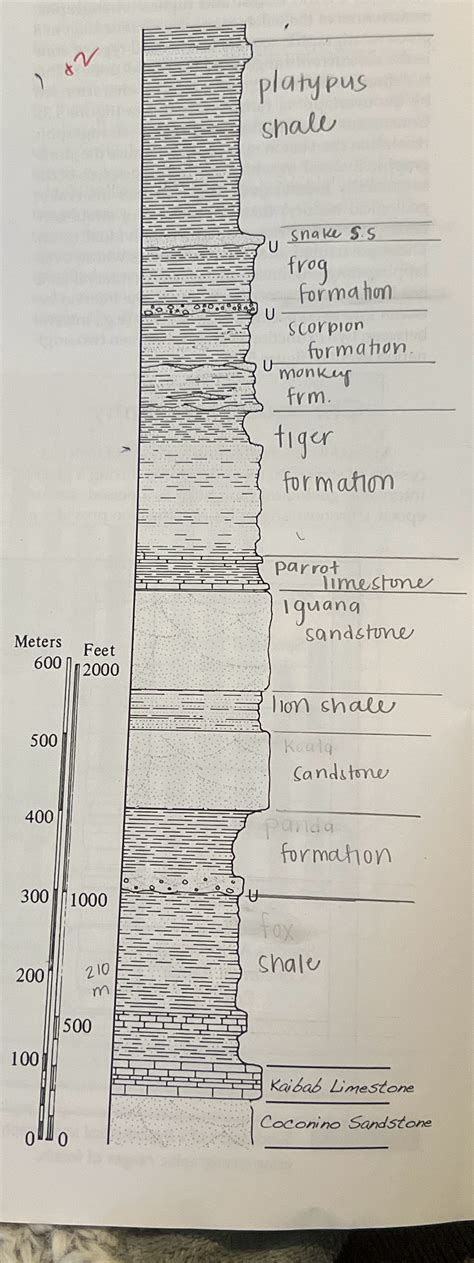 x2
platypus
shale
snake s.s
U
frog
formation
U
scorpion
formation.
U
monkey
frm.
tiger
formation
parrot
limestone
Iguana
sandstone
Meters
Feet
600
2000
lion shale
500
Koala
sandstone
400
panda
formation
300
1000
U
fox
shale
200
210
m
500
100
Kaibab Limestone
Coconino Sandstone
0
0